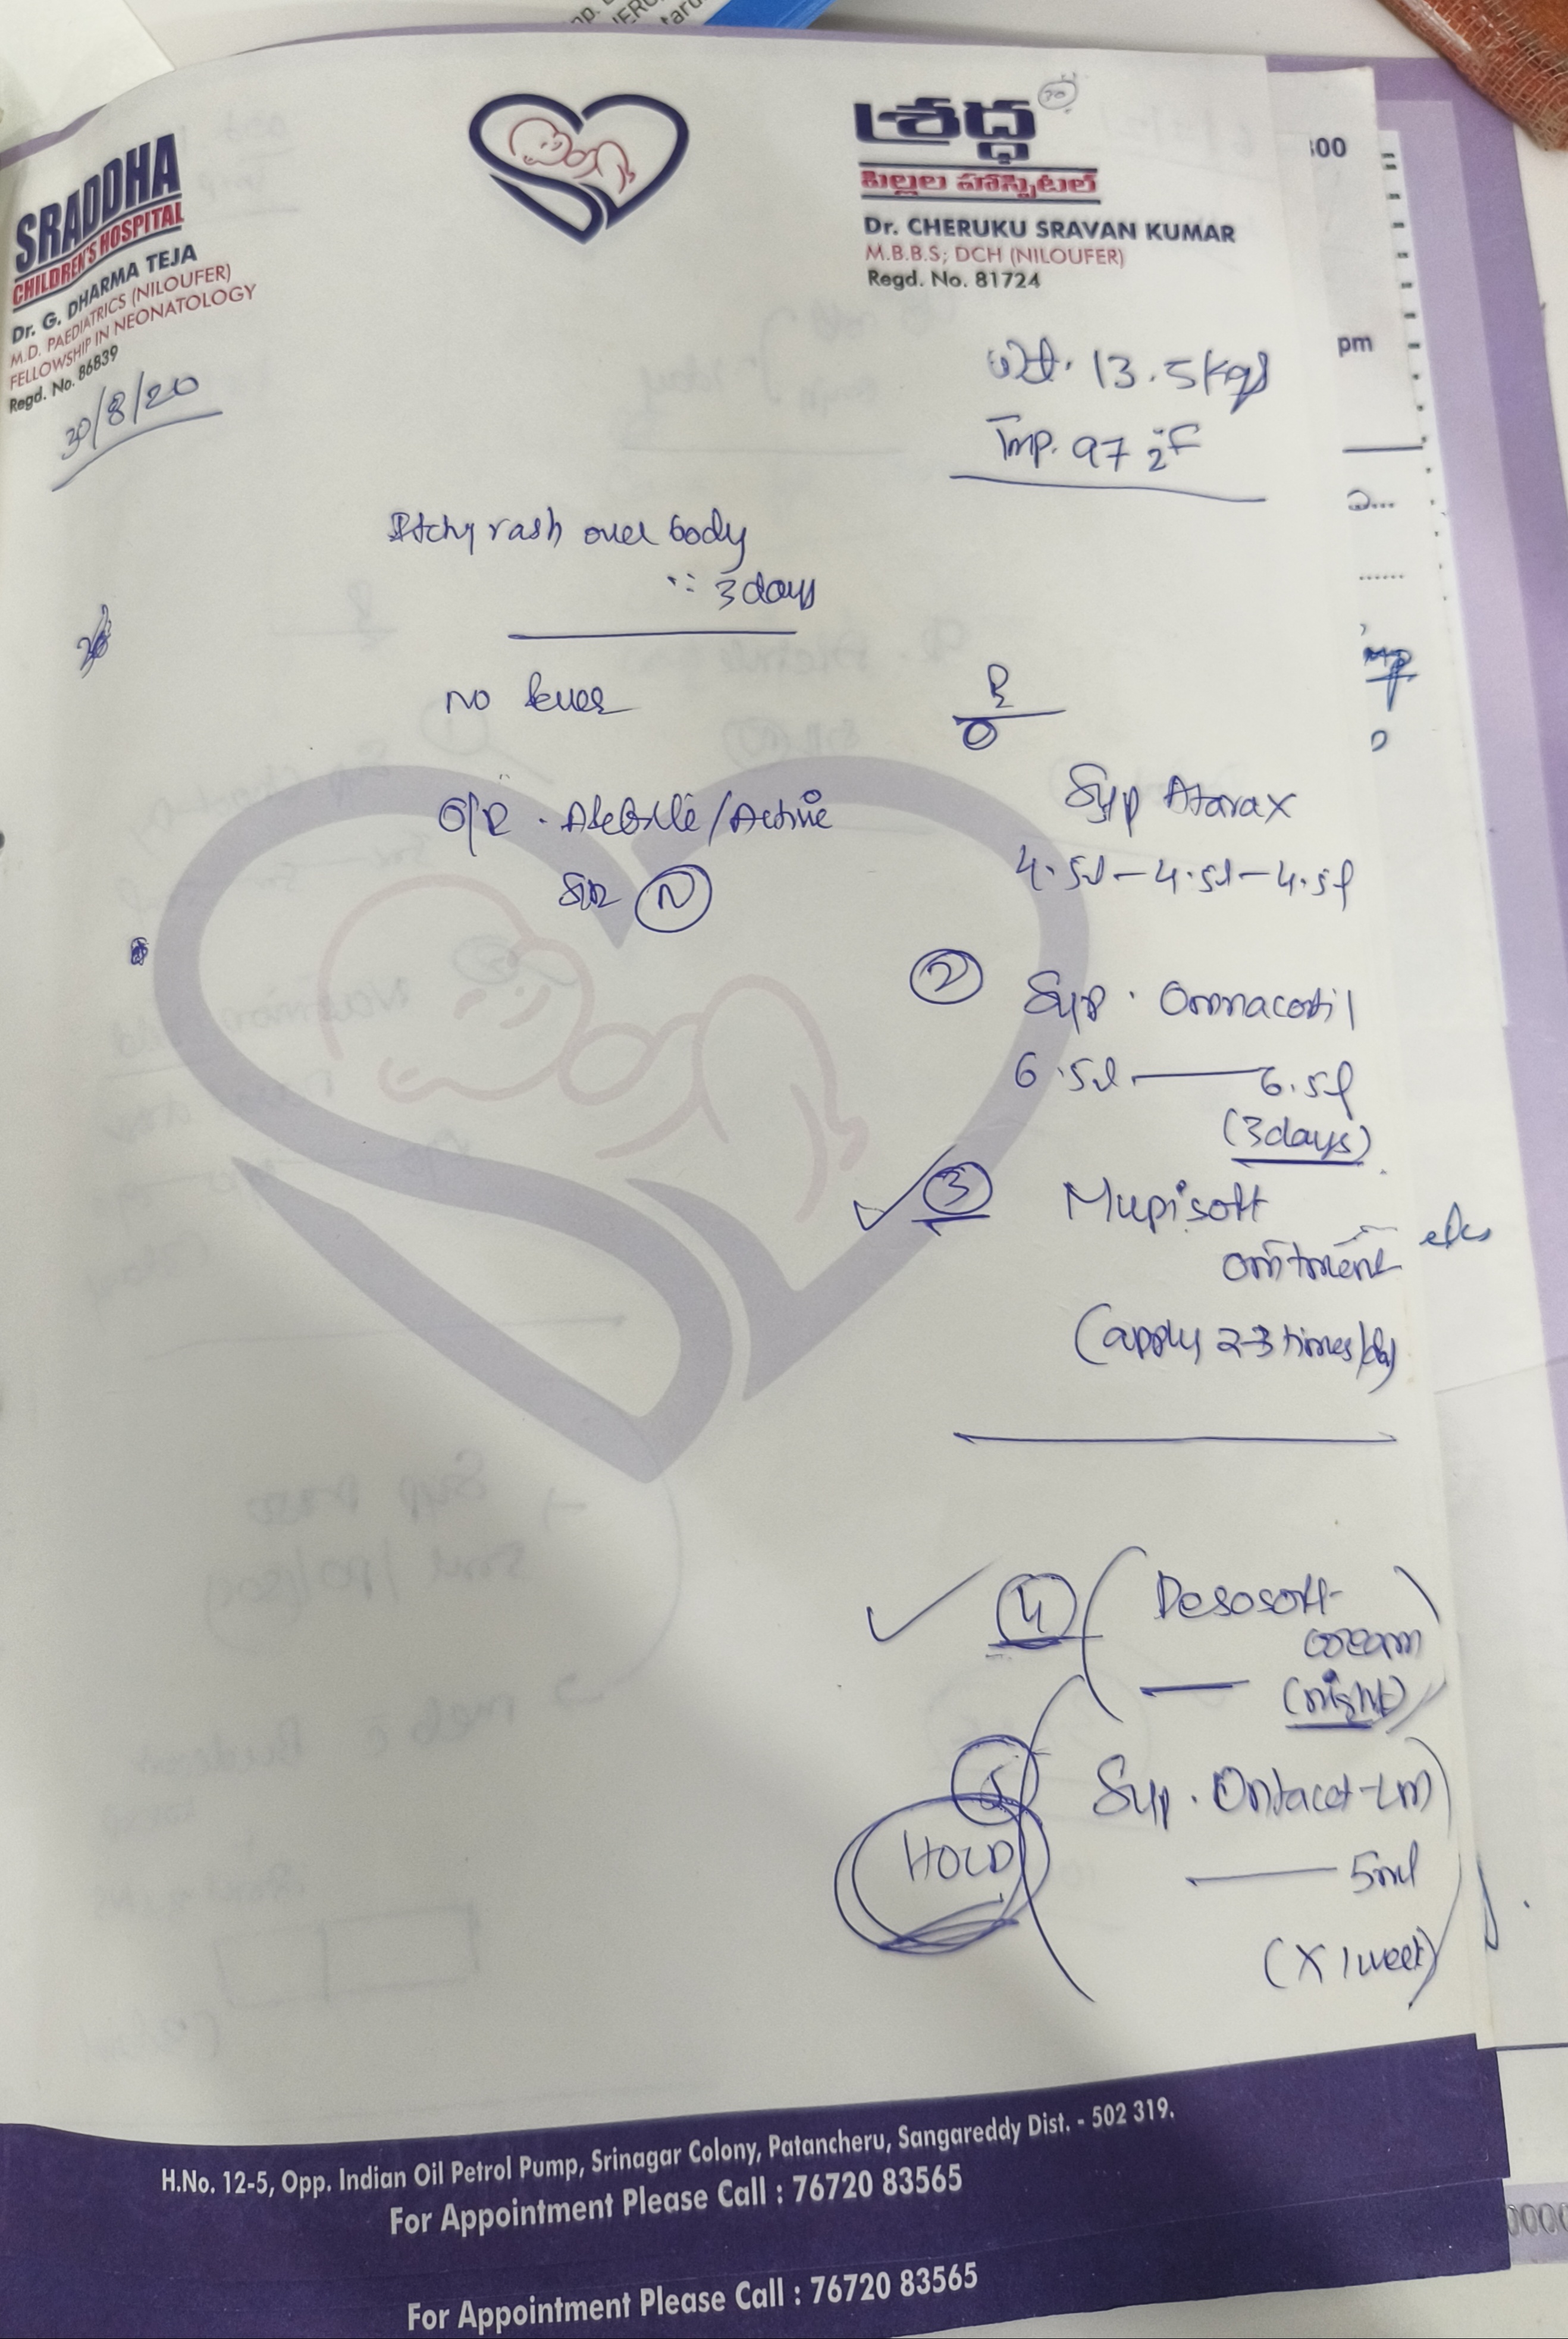 SRADDHA
CHILDREN'S HOSPITAL
Dr. G. DHARMA TEJA
M.D. PAEDIATRICS (NILOUFER)
FELLOWSHIP IN NEONATOLOGY
Regd. No. 86839
30/8/20
శ్రద్ధ
పిల్లల హాస్పిటల్
Dr. CHERUKU SRAVAN KUMAR
M.B.B.S; DCH (NILOUFER)
Regd. No. 81724
wt. 13.5kgs
Tmp. 97.2°F
Itchy rash over body
∵ 3 days
no fever
O/E. Afebrile/Active
S/E N
Syp Atarax
4.5ml - 4.5ml - 4.5ml
2 Syp. Omnacortil
6.5ml — 6.5ml
(3days)
3 Mupisoft
ointment
(apply 2-3 times/day)
4 (Desosoft
cream
(night)
5
HOLD
Syp. Ontacet-LM
— 5ml
(X 1 week)
pm
H.No. 12-5, Opp. Indian Oil Petrol Pump, Srinagar Colony, Patancheru, Sangareddy Dist. - 502 319.
For Appointment Please Call : 76720 83565
For Appointment Please Call : 76720 83565